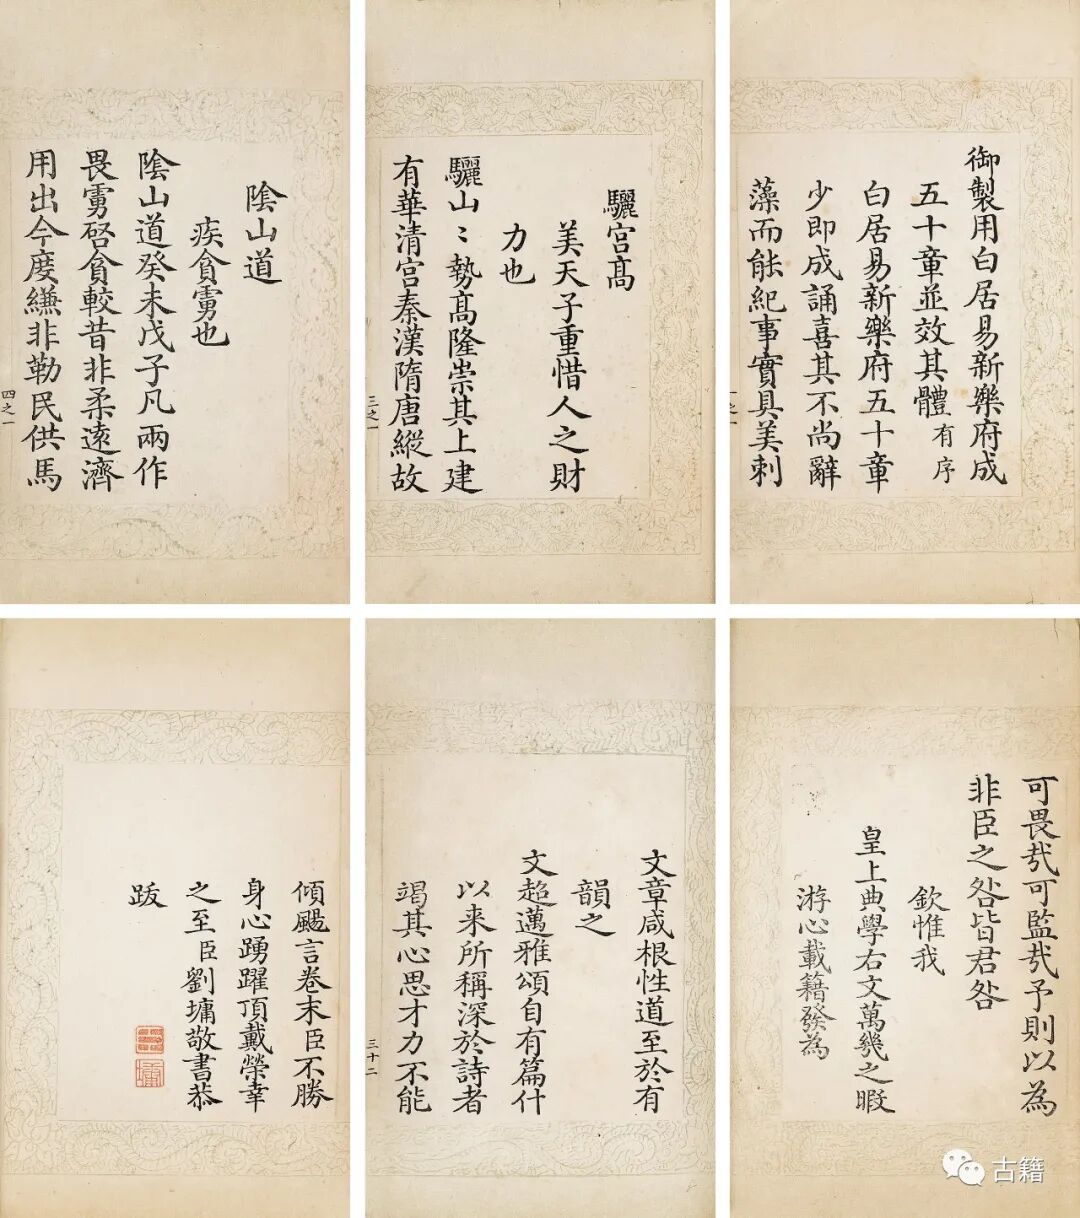 御製用白居易新樂府成
五十章並效其體有序
白居易新樂府五十章
少即成誦喜其不尚辭
藻而能紀事實具美刺
驪宮髙
美天子重惜人之財
力也
驪山〻勢髙隆崇其上建
有華清宮秦漢隋唐縱故
三之一
陰山道
疾貪虜也
陰山道癸未戊子凡兩作
畏虜啓貪較昔非柔遠濟
用出今度縑非勒民供馬
四之一
可畏哉可監哉予則以為
非臣之咎皆君咎
欽惟我
皇上典學右文萬幾之暇
游心載籍發為
文章咸根性道至於有
韻之
文超邁雅頌自有篇什
以来所稱深於詩者
竭其心思才力不能
三十二
傾颺言卷末臣不勝
身心踴躍頂戴榮幸
之至臣劉墉敬書恭
跋
古籍